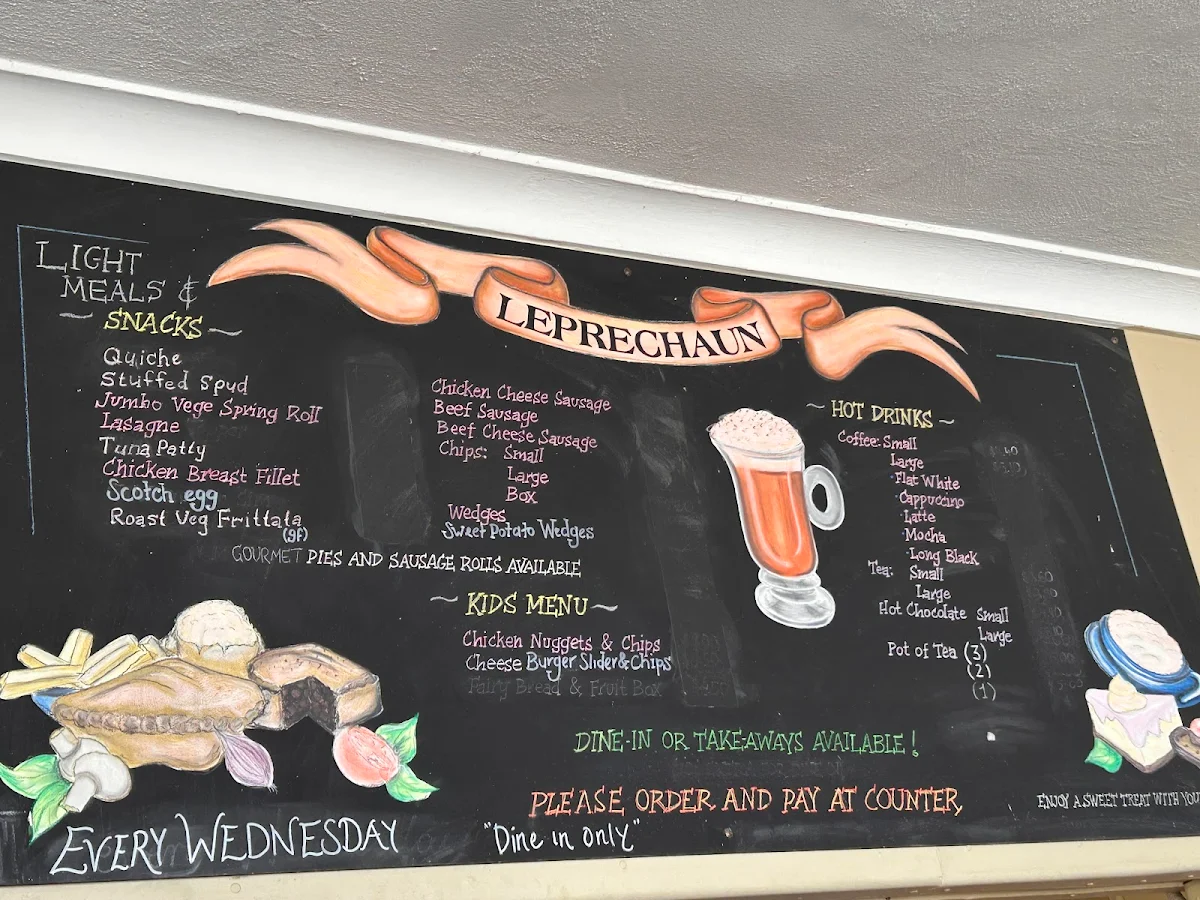 LEPRECHAUN
LIGHT
MEALS &
~ SNACKS ~
Quiche
Stuffed Spud
Jumbo Vege Spring Roll
Lasagne
Tuna Patty
Chicken Breast Fillet
Scotch egg
Roast Veg Frittata
(gf)
Chicken Cheese Sausage
Beef Sausage
Beef Cheese Sausage
Chips: Small
Large
Box
Wedges
Sweet Potato Wedges
GOURMET PIES AND SAUSAGE ROLLS AVAILABLE
~ KIDS MENU ~
Chicken Nuggets & Chips
Cheese Burger Slider & Chips
Fairy Bread & Fruit Box
~ HOT DRINKS ~
Coffee: Small
Large
·Flat White
·Cappuccino
·Latte
·Mocha
·Long Black
Tea: Small
Large
Hot Chocolate Small
Large
Pot of Tea (3)
(2)
(1)
DINE-IN OR TAKE-AWAYS AVAILABLE!
PLEASE ORDER AND PAY AT COUNTER,
EVERY WEDNESDAY
"Dine in only"
ENJOY A SWEET TREAT WITH YOU